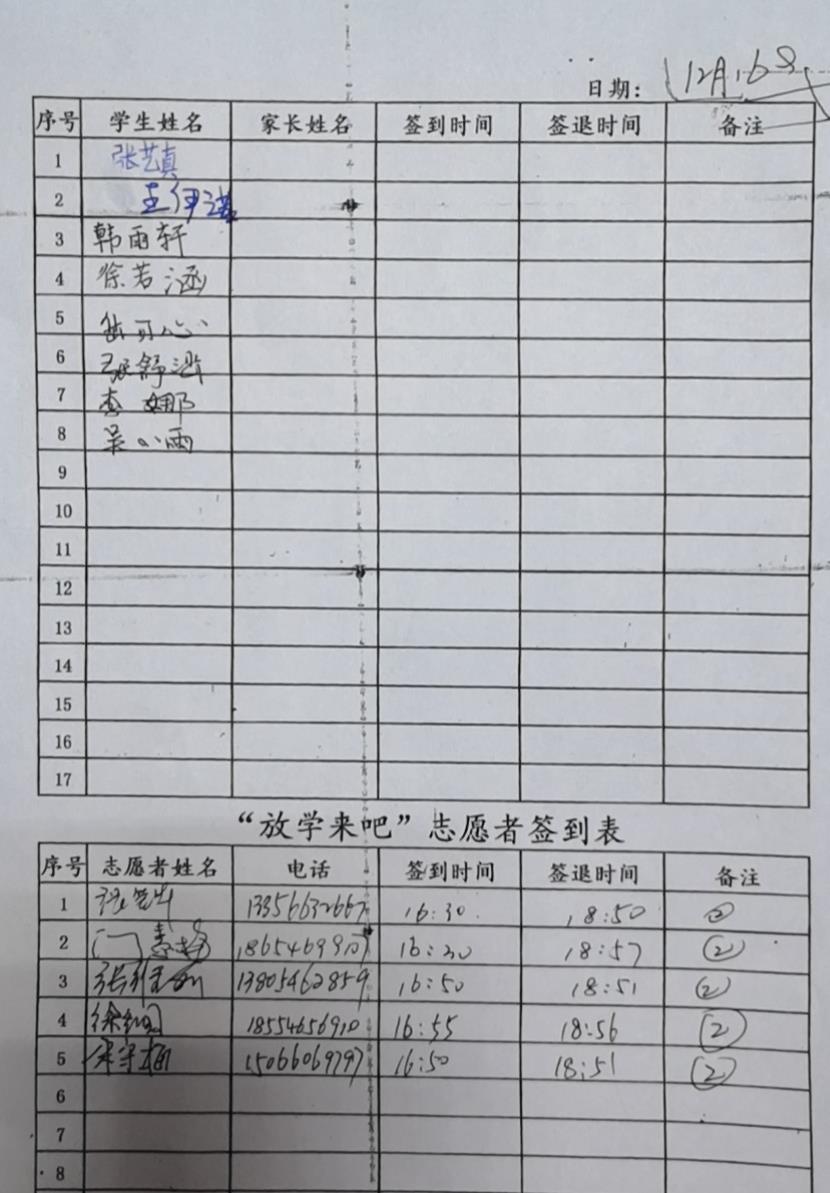 日期： 12月16日
序号 学生姓名 家长姓名 签到时间 签退时间 备注
1 张艺真
2 王伊诺
3 韩雨轩
4 徐若涵
5 可心
6 张舒涵
7 李娜
8 吴小雨
9
10
11
12
13
14
15
16
17
“放学来吧”志愿者签到表
序号 志愿者姓名 电话 签到时间 签退时间 备注
1 13356632667 16:30 18:50 ②
2 门 18654699107 16:30 18:57 ②
3 张 13805462859 16:50 18:51 ②
4 徐 18554656910 16:55 18:56 ②
5 15066069797 16:50 18:51 ②
6
7
8